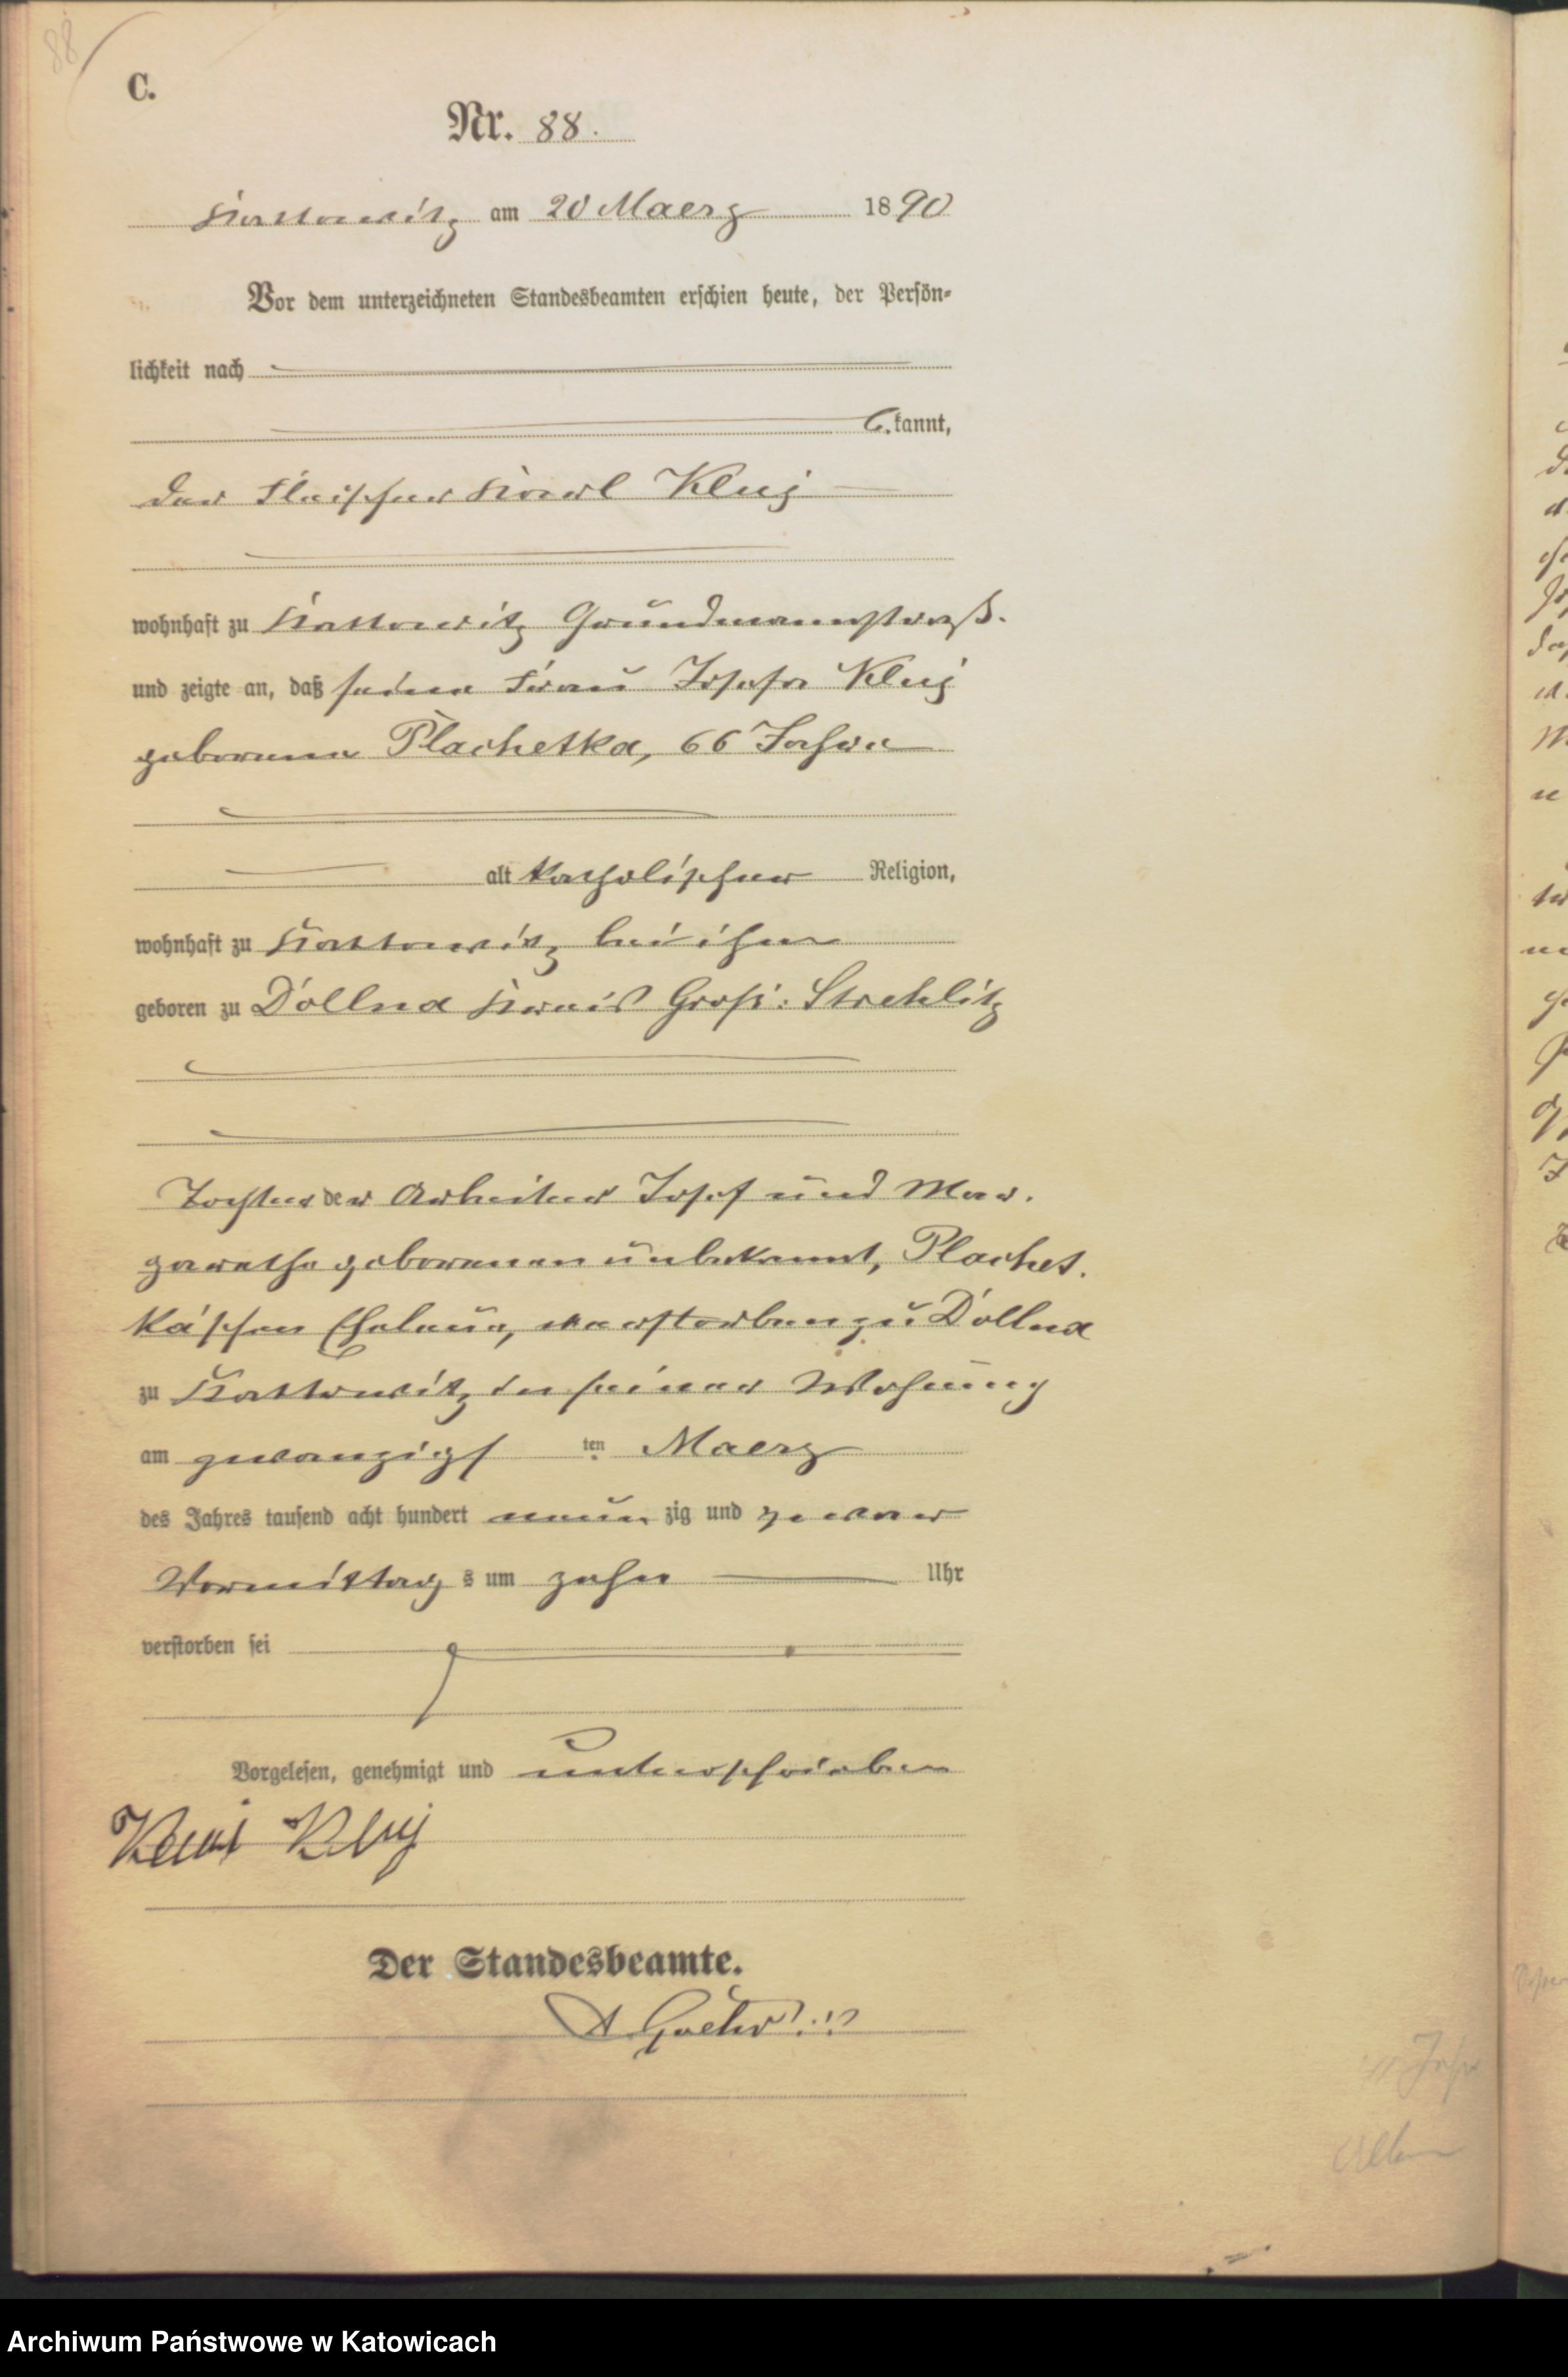 88
C.
Nr. 88.
Kattowitz am 20 Maerz 1890
Vor dem unterzeichneten Standesbeamten erschien heute, der Persön-
lichkeit nach
be kannt,
der Fleischer Karl Kluj
wohnhaft zu Kattowitz Grundmannstraß.
und zeigte an, daß seine Frau Josefa Kluj
geborene Plachetka, 66 Jahre
alt katholischer Religion,
wohnhaft zu Kattowitz bei ihm
geboren zu Dollna Kreis Groß: Strehlitz
Tochter der Arbeiter Josef und Mar.
garetha geborenen unbekannt, Plachet.
ka'schen Eheleute, verstorben zu Dollna
zu Kattowitz in seiner Wohnung
am zwanzigs ten Maerz
des Jahres tausend acht hundert neun zig und zwar
Vormittag s um zehn Uhr
verstorben sei
Vorgelesen, genehmigt und unterschrieben
Kluj
Der Standesbeamte.
Archiwum Państwowe w Katowicach